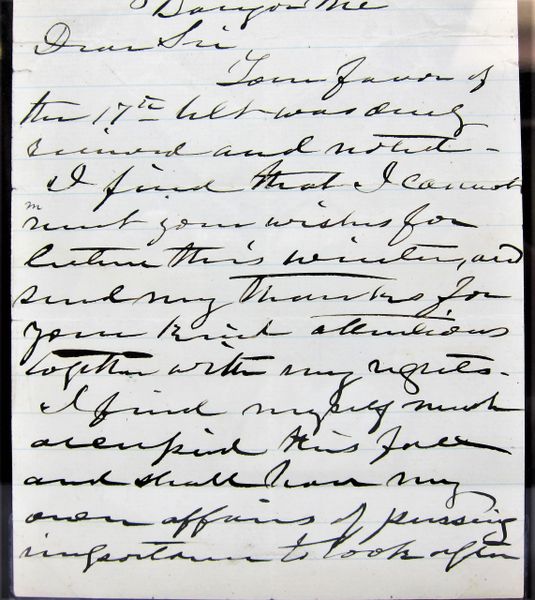 Bangor Me
Dear Sir
Your favor of
the 17th ult was duly
received and noted -
I find that I cannot
meet your wishes for
lecture this winter, and
send my thanks for
your kind attentions
together with my regrets -
I find myself much
occupied this fall
and shall have my
own affairs of pressing
importance to look after